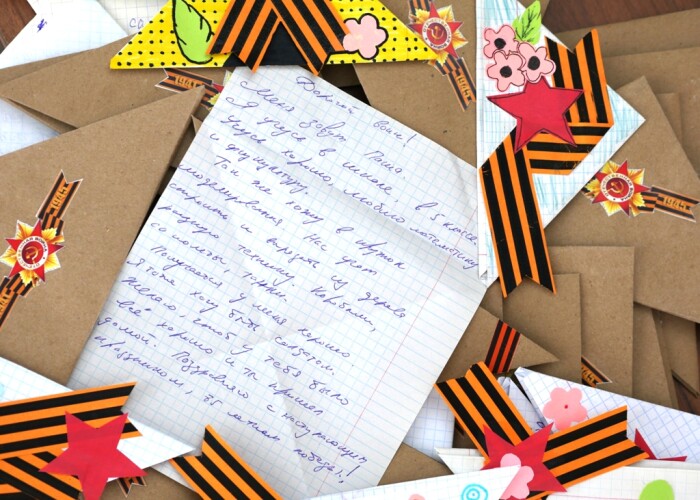 Дорогой воин!
Меня зовут Паша.
Я учусь в школе, в 5 классе.
Учусь хорошо, люблю математику
и физкультуру.
Так же хожу в кружок
моделирования. Нас учат
строить и вырезать из дерева
разную технику. Корабли,
самолёты, танки.
Получается у меня хорошо.
Я тоже хочу быть солдатом.
Желаю, чтоб у тебя было
всё хорошо и ты пришел
домой. Поздравляю с наступающим
праздником, 75 летием победы!
1945
1945
1945